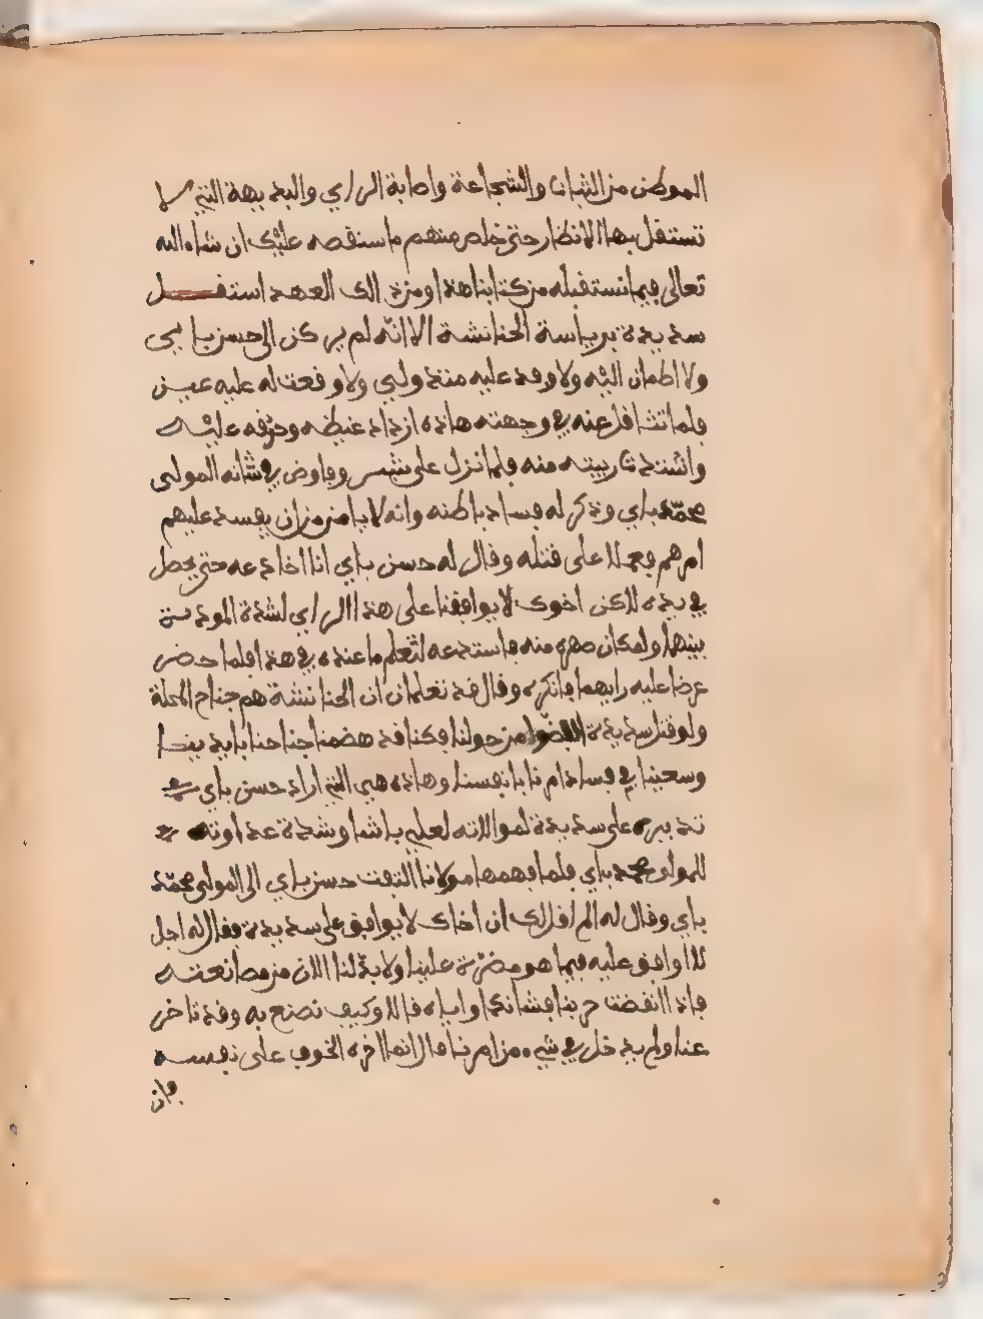 الموطن من الثبات والشجاعة واصابة الراي والبديهة التي لا
تستقل بها الانظار حتى خلص منهم ما سنقصه عليك ان شاء الله
تعالى فيما نستقبله من كتابنا هذا ومن ذلك العهد استقل
سديدة برياسة الحنانشة الا انه لم يركن الى حسن باي
ولا اطمان اليه ولا وفد عليه منذ ولي ولا وقعت له عليه عين
فلما تثاقل عنه في وجهته هاذه ازداد غيظه وحنقه عليه
واشتدت ريبته منه فلما نزل على بشر وفاوض في شانه المولى
محمد باي وذكر له فساد باطنه وانه لا يامن من ان يفسد عليهم
امرهم فعملا على قتله وقال له حسن باي انا اخادعه حتى يحصل
في يدي لاكن اخوك لا يوافقنا على هذا الراي لشدة المودة
بينهما ولمكان صهره منه فاستدعه لنعلم ما عنده في هذا فلما حضر
عرضا عليه رايهما فانكره وقال قد نعلمان ان الحنانشة هم جناح المحلة
ولو قتل سديدة انفضوا من حولنا فكنا قد هضمنا جناحنا بايدينا
وسعينا في فساد امرنا بانفسنا وهاذه هي التي اراد حسن باي في
تدبيره على سديدة لموالاته لعلي باشا وشدة عداوته
للمولى محمد باي فلما فهمها مولانا التفت حسن باي الى المولى محمد
باي وقال له الم اقل لك ان اخاك لا يوافق على سديدة فقال له اجل
لا اوافق عليه فيما هو مضرة علينا ولا بد لنا الان من مصانعته
فاذا انقضت حربنا فشانكما واياه قالا وكيف نصنع به وقد تاخر
عنا ولم يدخل في شيء من امرنا قال انما اخره الخوف على نفسه
فان